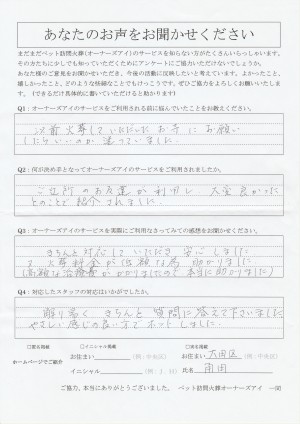 あなたのお声をお聞かせください
まだまだペット訪問火葬(オーナーズアイ)のサービスを知らない方がたくさんいらっしゃいます。
その方たちに少しでも知っていただくためにアンケートにご協力いただけないでしょうか。
あなた様のご意見をお聞かせいただき、今後の活動に反映したいと考えています。よかったこと、
嬉しかったこと、どのような些細なことでもけっこうです。ぜひご協力をよろしくお願いいたします。
(できるだけ具体的に書いていただけると助かります)
Q1:オーナーズアイのサービスをご利用される前に悩んでいたことをお教えください。
以前火葬していただいたお寺にお願い
したらいいのか迷っていました。
Q2:何が決め手となってオーナーズアイのサービスをご利用されましたか。
ご近所のお友達が利用し、大変良かった
とのことで紹介されました。
Q3:オーナーズアイのサービスを実際にご利用なさってみての感想をお聞かせください。
きちんと対応していただき安心しました
又、火葬料金が低額な為助かりました
(高額な治療費がかかりましたので本当に助かりました)
Q4:対応したスタッフの対応はいかがでしたか。
解り易くきちんと質問に答えて下さいました
やさしい感じの良い方でホッとしました。
□匿名掲載 □イニシャル掲載 □実名掲載
ホームページでご紹介 お住まい (例:中央区) お住まい 大田区 (例:中央区)
イニシャル 氏名 雨田
ご協力、本当にありがとうございました。 ペット訪問火葬オーナーズアイ